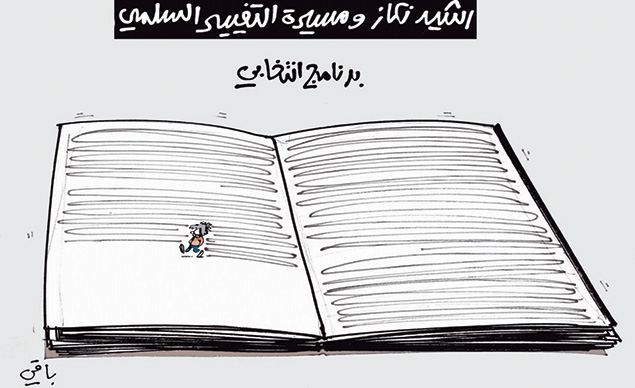 رشيد نكاز ومسيرة التغيير السلمي
برنامج انتخابي
باقي